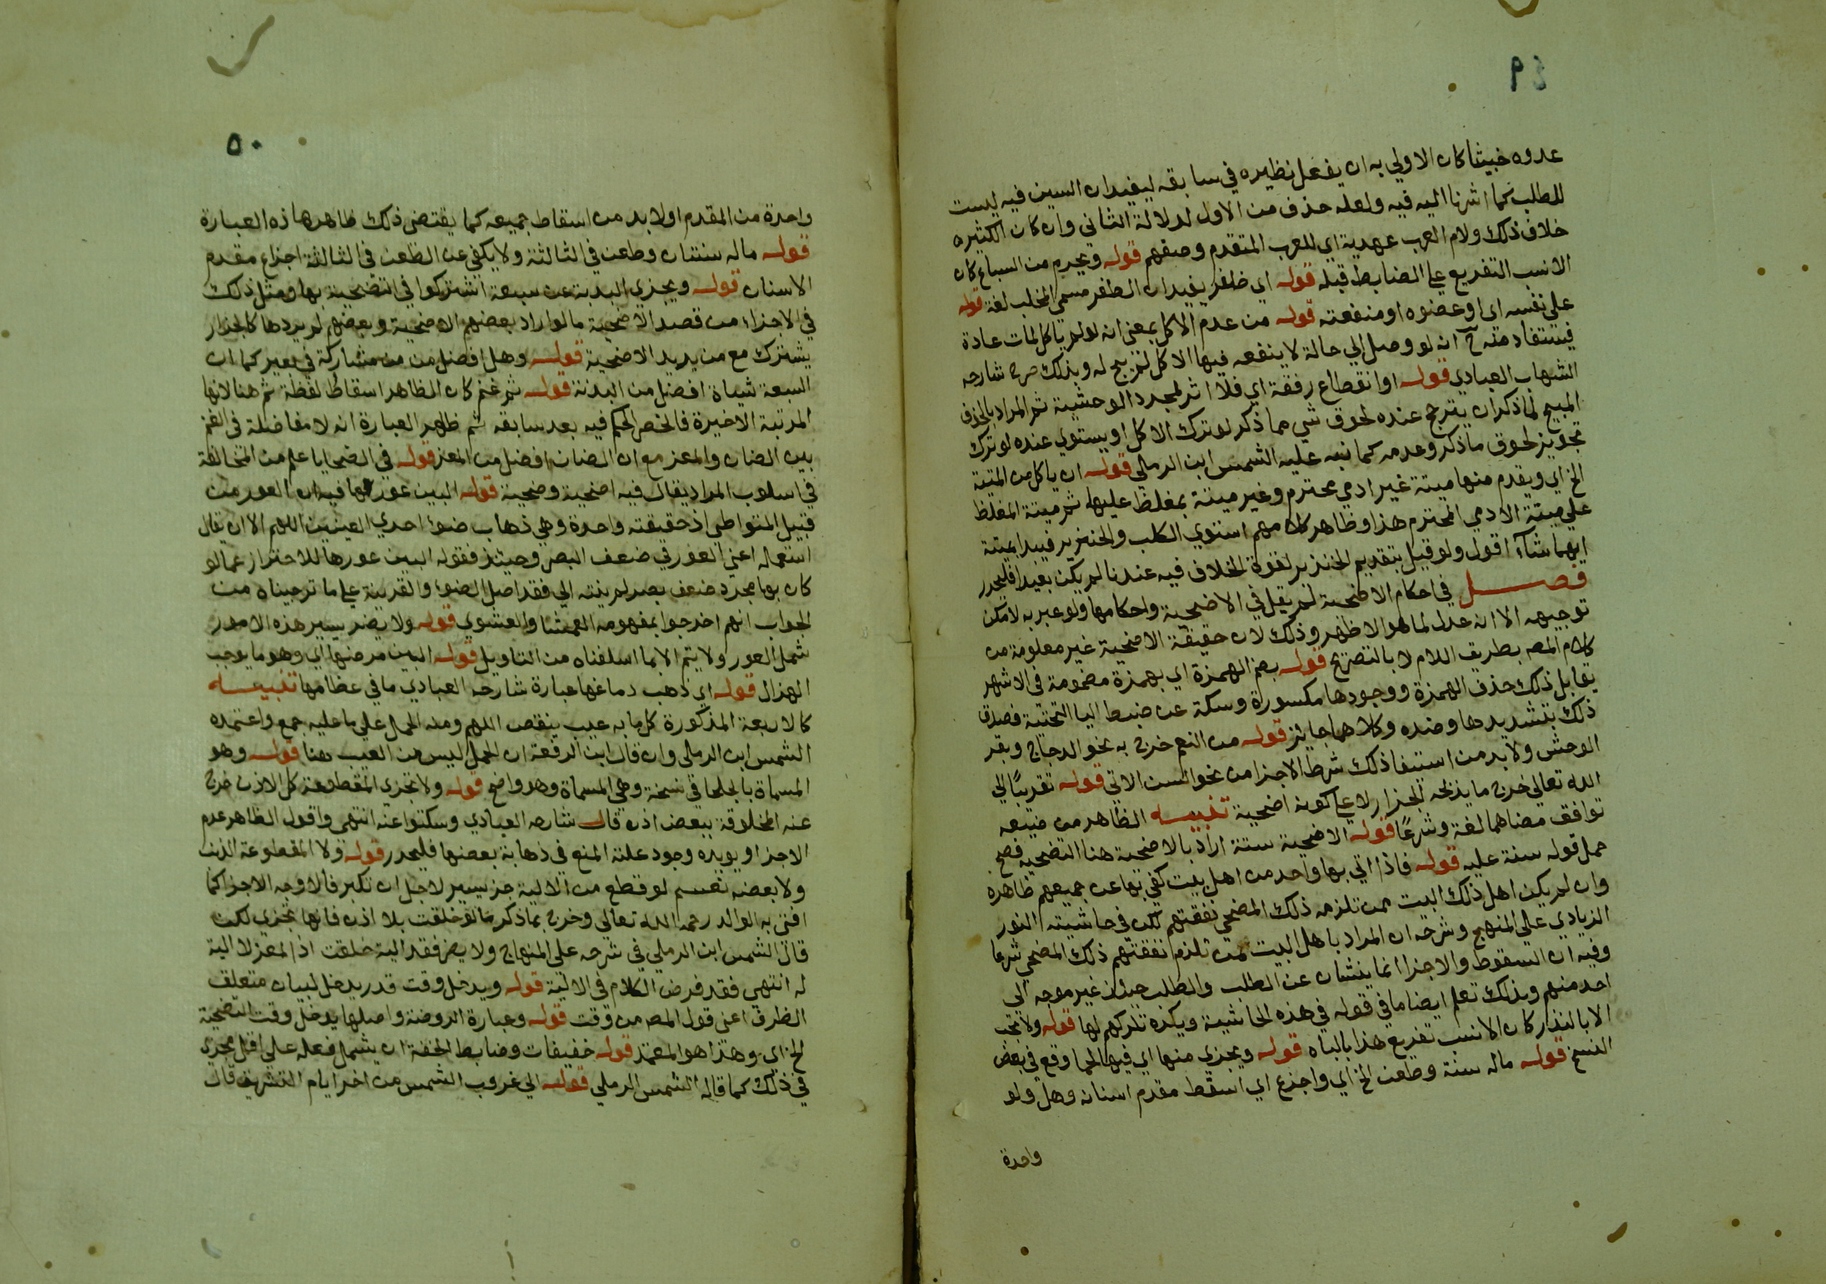 ٤٩
عدوه خبيثا كان الاولي به ان يفعل نظيره في سابقه ليفيد ان السين فيه ليست
للطلب كما اشرنا اليه فيه ولعله حذف من الاول لدلالة الثاني وان كان الكثير
خلاف ذلك ولام العرب عهدية اي للعرب المتقدم وصفهم قوله ويحرم من السباع كان
الانسب التفريع علي الضابط قبله قوله اي ظفر يفيد ان الظفر مسمي المخلب لغة قوله
علي نفسه اي او عضوه او منفعته قوله من عدم الاكل بمعني انه لو لم ياكل لمات عادة
فيستفاد منه ح انه لو وصل الي حالة لا ينفعه فيها الاكل لم يبح له وبذلك صرح شارحه
الشهاب العبادي قوله او انقطاع رفقة اي فلا اثر لمجرد الوحشة ثم المراد بالخوف
المبيح لما ذكر ان يترجح عنده لحوق شي مما ذكر لو ترك الاكل او يستوي عنده لو ترك
تجويز لحوق ما ذكر وعدمه كما نبه عليه الشمس ابن الرملي قوله ان ياكل من الميتة
الخ اي ويقدم منها ميتة غير ادمي محترم وغير ميتة بمغلظ عليها ثم ميتة المغلظ
علي ميتة الادمي المحترم هذا وظاهر كلامهم استوي الكلب والخنزير فيبدا بميتة
ايهما شاء اقول ولو قيل بتقديم الخنزير لقوة الخلاف فيه عندنا لم يكن بعيدا فليحرر
فصل في احكام الاضحية لم يقل في الاضحية واحكامها ولو عبر به لامكن
توجيهه الا انه عدل لما هو الاظهر وذلك لان حقيقة الاضحية غير معلومة من
كلام المصه بطريق اللام لا بالتصريح قوله بضم الهمزة اي بهمزة مضمومة في الاشهر
يقابل ذلك حذف الهمزة ووجودها مكسورة وسكت عن ضبط اليا التحتية فصدق
ذلك بتشديدها وضده وكلاهما جائز قوله من النعم خرج به نحو الدجاج وبقر
الوحش ولا بد من استيفا ذلك شرط الاجزا من نحو السن الاتي قوله تقربًا الي
الله تعالي خرج ما يذبحه الجزار لا علي كونه اضحية تنبيه الظاهر من صنيعه
توافق معناهما لغة وشرعًا قوله الاضحية سنة اراد بالاضحية هنا التضحية فصح
حمل قوله سنة عليه قوله فاذا اتي بها واحد من اهل بيت كفي بها عن جميعهم ظاهره
وان لم يكن اهل ذلك البيت ممن تلزمه ذلك المضحي نفقتهم لكن في حاشيته النور
الزيادي علي المنهج وشرحه ان المراد باهل البيت من تلزم نفقتهم ذلك المضحي شرعا
وفيه ان السقوط والاجزا انما ينشان عن الطلب والطلب حينئذ غير موجه الي
احد منهم وبذلك تعلم ايضا ما في قوله في هذه الحاشية ويكره تركهم لها قوله ولا تجب
الا بالنذر كان الانسب تفريع هذا بالفاء قوله ويجزي منها اي فيها لما وقع في بعض
النسخ قوله ماله سنة وطعن الخ اي واجزع اي اسقط مقدم اسنانه وهل ولو
واحدة
٥٠
واحدة من المقدم اولا بد من اسقاط جميعه كما يقتضي ذلك ظاهر هاذه العبارة
قوله ماله سنتان وطعن في الثالثة ولا يكفي عن الطعن في الثالثة اجزاع مقدم
الاسنان قوله ويجزي البدنة عن سبعة اشتركوا في التضحية بها ومثل ذلك
في الاجزاء من قصد الاضحية ما لو اراد بعضهم الاضحية وبعضهم لم يردها كالجزار
يشترك مع من يريد الاضحية قوله وهل افضل من مشاركة في بعير كما ان
السبعة شياه افضل من البدنة قوله ثم غنم كان الظاهر اسقاط لفظة ثم هنا لانها
المرتبة الاخيرة فالخص الحكم فيه بعد سابقه ثم ظاهر العبارة انه لا مفاضلة في الغنم
بين الضان والمعز مع ان الضان افضل من المعز قوله في الضحايا علم من المخالفة
في اسلوب المراد يقال فيه اضحية وضحية قوله البين عورها فيه ان العور من
قبيل المتواطي اذ حقيقته واحدة وهي ذهاب ضوء احدي العينين اللهم الا ان يقال
استعماله اعني العور في ضعف البصر وحينئذ فقوله البين عورها للاحتراز عما لو
كان بها مجرد ضعف بصر لم ينته الي فقد اصل الضوء والقرينة علي ما ترجيناه من
الجواب انهم اخرجوا بمفهومه العمشا والعشوي قوله ولا يضر يسير هذه الامور
شمل العور ولا يتم الا بما اسلفناه من التاويل قوله البين مرضها اي وهو ما يوجب
الهزال قوله اي ذهب دماغها عبارة شارحه العبادي ما في عظامها تنبيه
كالاربعة المذكورة كل ما به عيب ينقص اللحم ومنه الحمل علي ما عليه جمع واعتمده
الشمس ابن الرملي وان قال ابن الرفعة ان الحمل ليس من العيب هنا قوله وهو
المسماة بالجلحا في نسخة وهي المسماة وهو واضح قوله ولا تجزي المقطوعة كل الاذن خرج
عنه المخلوقة ببعض اذن قال شارحه العبادي وسكتوا عنه انتهي واقول الظاهر عدم
الاجزا ويويده وجود علة المنع في ذهابه بعضها فليحرر قوله ولا المقطوعة الذنب
ولا بعضه نعم لو قطع من الالية جز يسير لاجل ان تكبر فالاوجه الاجزا كما
افتي به الوالد رحمه الله تعالي وخرج بما ذكر ما لو خلقت بلا اذن فانها تجزي لكن
قال الشمس ابن الرملي في شرحه علي المنهاج ولا يضر فقد الية خلقت اذ المعز لا الية
له انتهي فقد فرض الكلام في الالية قوله ويدخل وقت قدر يدخل لبيان متعلق
الظرف اعني قول المصه من وقت قوله وعبارة الروضة واصلها يدخل وقت التضحية
الخ اي وهذا هو المعتمد قوله خفيفات وضابط الخفة ان يشمل فعله علي اقل مجزي
في ذلك كما قاله الشمس الرملي قوله الي غروب الشمس من اخر ايام التشريق قال